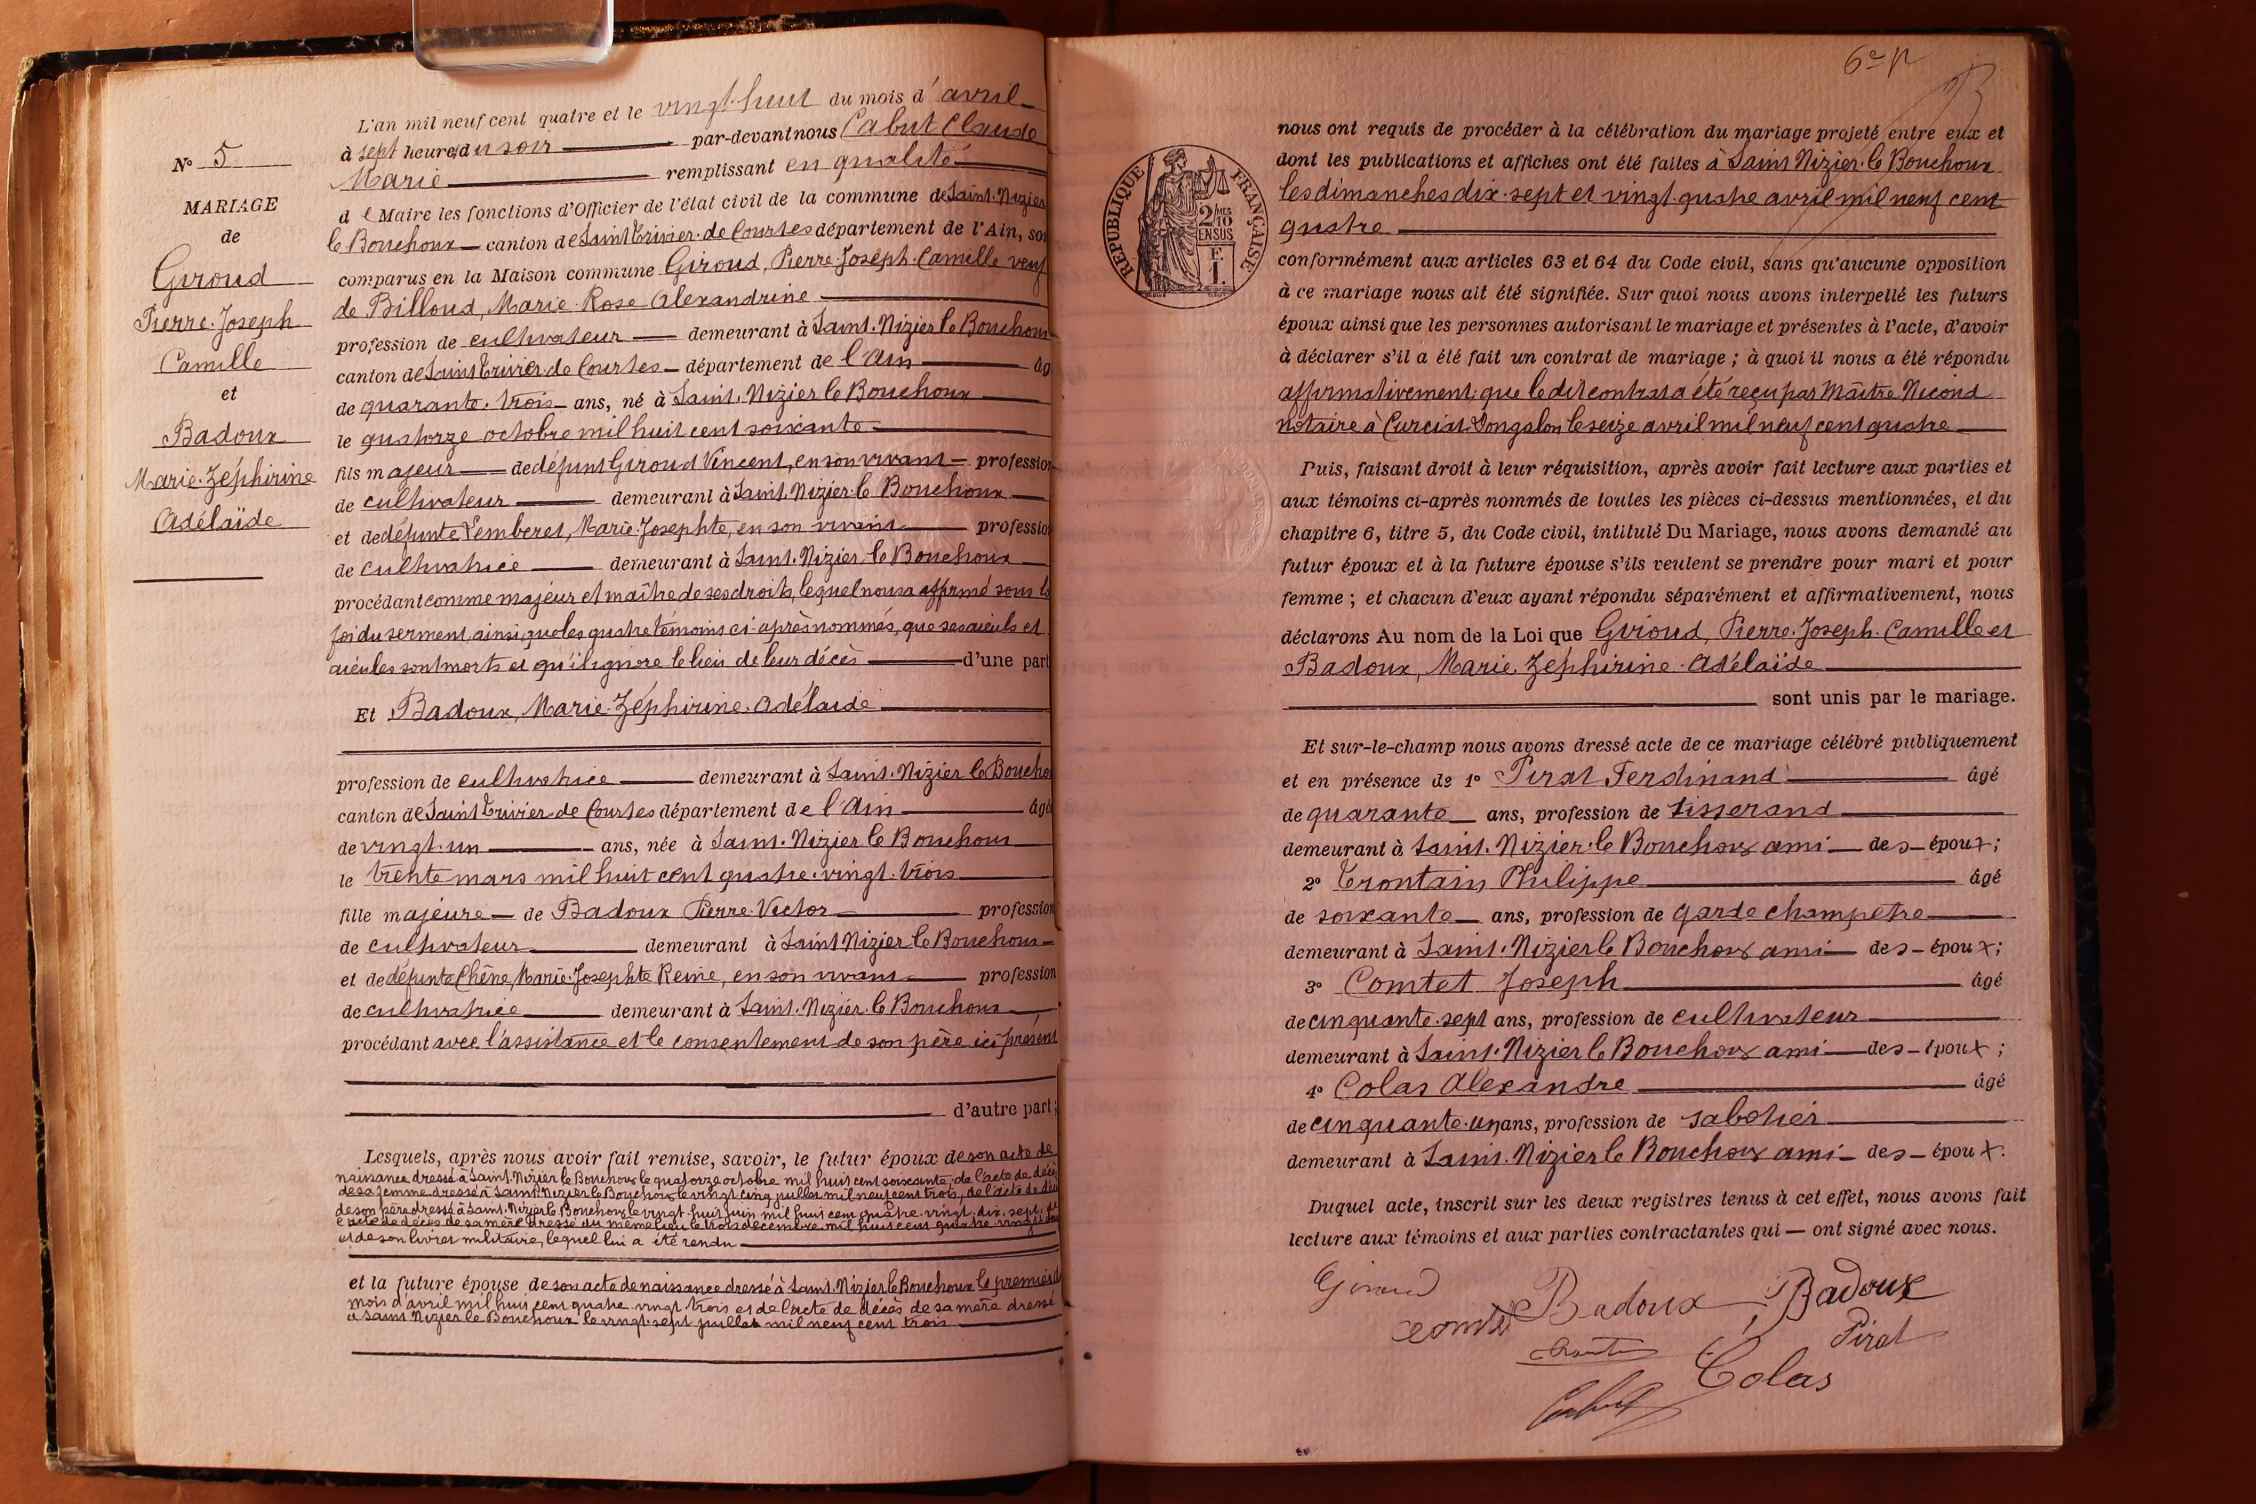 L'an mil neuf cent quatre et le vingt-huit du mois d'avril
à sept heures du soir par-devant nous Cabut Claude
Marie remplissant en qualité
d e Maire les fonctions d'Officier de l'état civil de la commune de Saint-Nizier
le Bouchoux canton de Saint Trivier-de Courtes département de l'Ain, so
comparus en la Maison commune Giroud, Pierre-Joseph-Camille veuf
de Billoud, Marie-Rose Alexandrine
profession de cultivateur demeurant à Saint-Nizier le Bouchoux
canton de Saint Trivier de Courtes département de l'Ain âg
de quarante-trois ans, né à Saint-Nizier le Bouchoux
le quatorze octobre mil huit cent soixante
fils majeur de défunt Giroud Vincent, en son vivant profession
de cultivateur demeurant à Saint Nizier-le Bouchoux
et de défunte Pemberet, Marie-Josephte, en son vivant profession
de cultivatrice demeurant à Saint-Nizier le Bouchoux
procédant comme majeur et maître de ses droits, lequel nous a affirmé sous la
foi du serment ainsi que les quatre témoins ci-après nommés, que ses aïeuls et
aïeules sont morts et qu'il ignore le lieu de leur décès d'une part
Et Badoux, Marie-Zéphirine-Adélaïde
profession de cultivatrice demeurant à Saint-Nizier le Boucho
canton de Saint Trivier-de Courtes département de l'Ain âgé
de vingt-un ans, née à Saint-Nizier le Bouchoux
le trente mars mil huit cent quatre-vingt-trois
fille majeure de Badoux Pierre-Victor profession
de cultivateur demeurant à Saint Nizier-le Bouchoux
et de défunte Chêne, Marie-Josephte Reine, en son vivant profession
de cultivatrice demeurant à Saint-Nizier-le Bouchoux
procédant avec l'assistance et le consentement de son père ici présent
d'autre part;
Lesquels, après nous avoir fait remise, savoir, le futur époux de son acte de
naissance dressé à Saint-Nizier le Bouchoux le quatorze octobre mil huit cent soixante, de l'acte de décè
de sa femme dressé à Saint-Nizier le Bouchoux le vingt cinq juillet mil neuf cent trois, de l'acte de déc
de son père dressé à Saint-Nizier le Bouchoux le vingt huit juin mil huit cent quatre-vingt-dix-sept, de
l'acte de décès de sa mère dressé au même lieu le trois décembre mil huit cent quatre vingt
et de son livret militaire, lequel lui a été rendu
et la future épouse de son acte de naissance dressé à Saint-Nizier le Bouchoux le premier d
mois d'avril mil huit cent quatre vingt trois et de l'acte de décès de sa mère dressé
à Saint Nizier le Bouchoux le vingt-sept juillet mil neuf cent trois
N° 5
MARIAGE
de
Giroud
Pierre-Joseph
Camille
et
Badoux
Marie-Zéphirine
Adélaïde
6e
RÉPUBLIQUE FRANÇAISE
2 10
EN SUS
nous ont requis de procéder à la célébration du mariage projeté entre eux et
dont les publications et affiches ont été faites à Saint Nizier-le Bouchoux
les dimanches dix-sept et vingt-quatre avril mil neuf cent
quatre
conformément aux articles 63 et 64 du Code civil, sans qu'aucune opposition
à ce mariage nous ait été signifiée. Sur quoi nous avons interpellé les futurs
époux ainsi que les personnes autorisant le mariage et présentes à l'acte, d'avoir
à déclarer s'il a été fait un contrat de mariage ; à quoi il nous a été répondu
affirmativement, que le dit contrat a été reçu par Maître Nicoud
notaire à Curciat-Dongalon le seize avril mil neuf cent quatre
Puis, faisant droit à leur réquisition, après avoir fait lecture aux parties et
aux témoins ci-après nommés de toutes les pièces ci-dessus mentionnées, et du
chapitre 6, titre 5, du Code civil, intitulé Du Mariage, nous avons demandé au
futur époux et à la future épouse s'ils veulent se prendre pour mari et pour
femme ; et chacun d'eux ayant répondu séparément et affirmativement, nous
déclarons Au nom de la Loi que Giroud, Pierre-Joseph-Camille et
Badoux, Marie-Zéphirine-Adélaïde
sont unis par le mariage.
Et sur-le-champ nous avons dressé acte de ce mariage célébré publiquement
et en présence de 1° Pirat Ferdinand âgé
de quarante ans, profession de tisserand
demeurant à Saint-Nizier-le Bouchoux ami des époux;
2° Trontain Philippe âgé
de soixante ans, profession de garde champêtre
demeurant à Saint-Nizier le Bouchoux ami des époux;
3° Comtet Joseph âgé
de cinquante-sept ans, profession de cultivateur
demeurant à Saint-Nizier le Bouchoux ami des époux;
4° Colas Alexandre âgé
de cinquante-un ans, profession de sabotier
demeurant à Saint-Nizier le Bouchoux ami des époux.
Duquel acte, inscrit sur les deux registres tenus à cet effet, nous avons fait
lecture aux témoins et aux parties contractantes qui ont signé avec nous.
Giroud Badoux Badoux
Comtet Pirat
Colas
Cabut